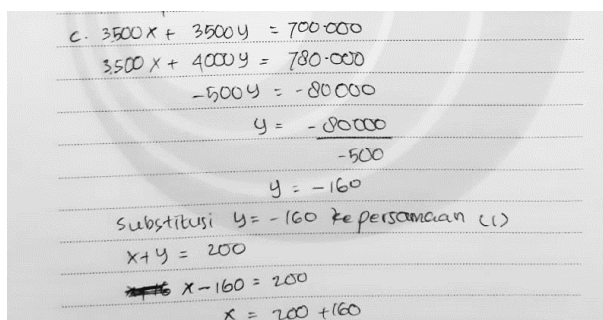 c. 3500x + 3500y = 700.000
3.500x + 4000y = 780.000
-500y = -80000
y = -80000
-500
y = -160
Substitusi y = -160 ke persamaan (1)
x+y = 200
x-160 = 200
x = 200 +160